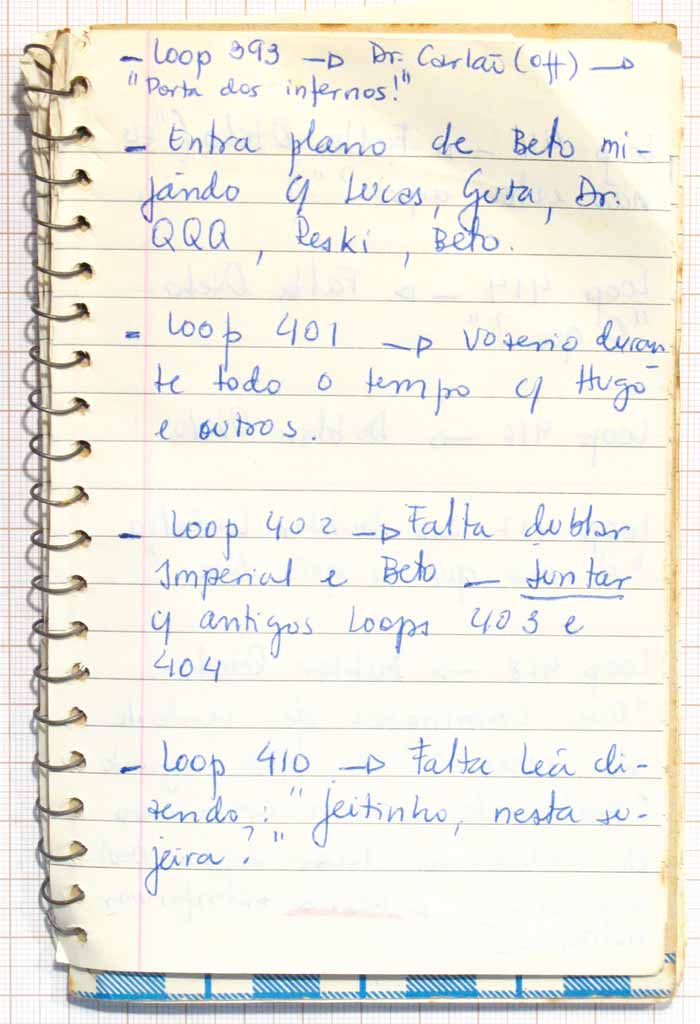 - Loop 393 → Dr. Carlão (off) →
"Porta dos infernos!"
- Entra plano de Beto mi-
jando c/ Lucas, Guta, Dr.
QQQ, Peski, Beto.
- Loop 401 → Vozerio duran-
te todo o tempo c/ Hugo
e outros.
- Loop 402 → Falta dublar
Imperial e Beto - Juntar
c/ antigos Loops 403 e
404
- Loop 410 → Falta Leá di-
zendo: "Jeitinho, nesta su-
jeira?"